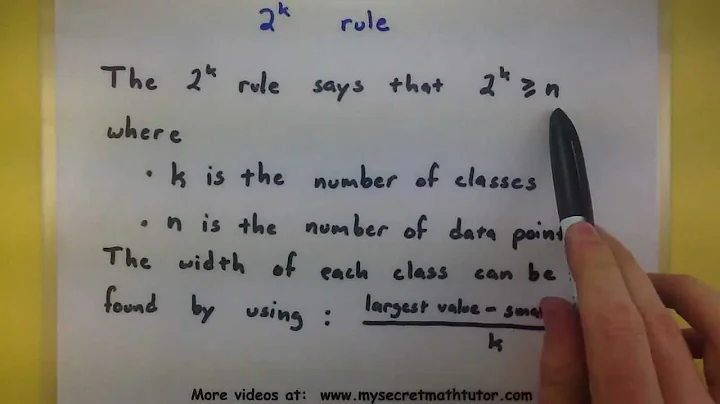 2^k rule
The 2^k rule says that 2^k ≥ n
where
• k is the number of classes
• n is the number of data
The width of each class can be
found by using : largest value -
k
More videos at: www.mysecretmathtutor.com